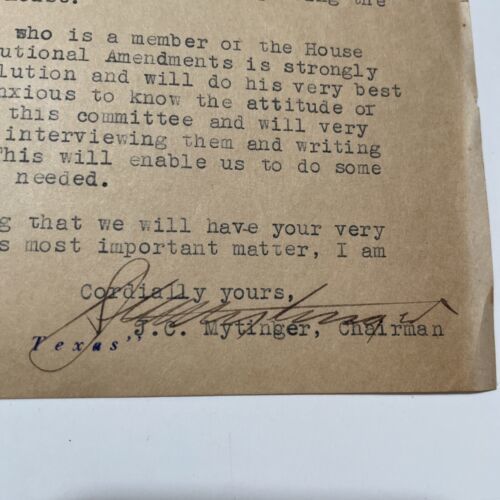 the
who is a member of the House
utional Amendments is strongly
lution and will do his very best
nxious to know the attitude of
this committee and will very
interviewing them and writing
This will enable us to do some
needed.
g that we will have your very
s most important matter, I am
Cordially yours,
J.C. Mytinger, Chairman
Texas"